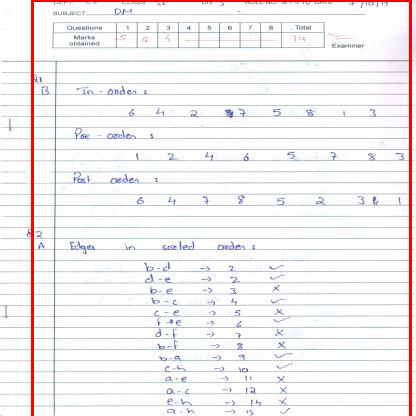 SUBJECT DM
Questions 1 2 3 4 5 6 7 8 Total
Marks obtained 5 5 4 14
Examiner
Q1
B In-order :
6 4 2 7 5 8 1 3
Pre-order :
1 2 4 6 5 7 8 3
Post order :
6 4 7 8 5 2 3 1
Q2
A Edges in sorted order :
b-d → 2 ✓
d-e → 2 ✓
b-e → 3 ✗
b-c → 4 ✓
c-e → 5 ✗
f-e → 6 ✓
d-f → 7 ✗
b-f → 8 ✗
b-a → 9 ✓
c-h → 10 ✓
a-e → 11 ✗
a-c → 12 ✗
e-h → 14 ✗
g-h → 15 ✓